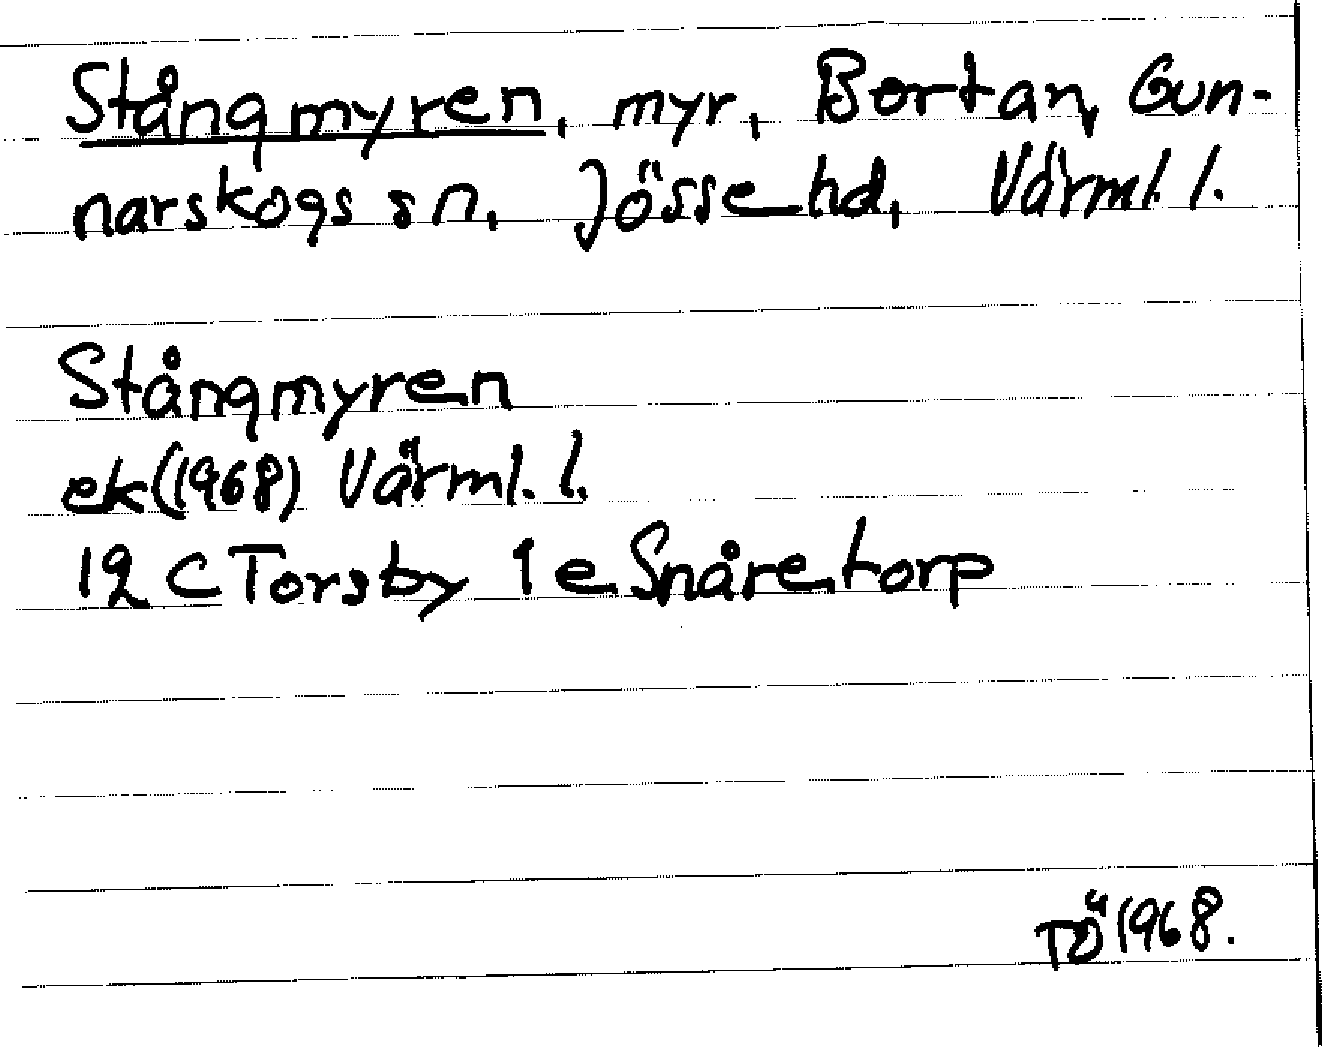 Stångmyren, myr, Bortan, Gun-
narskogs sn, Jösse hd, Värml. l.
Stångmyren
ek (1968) Värml. l.
12 C Torsby 1 e Snåretorp
TÖ 1968.